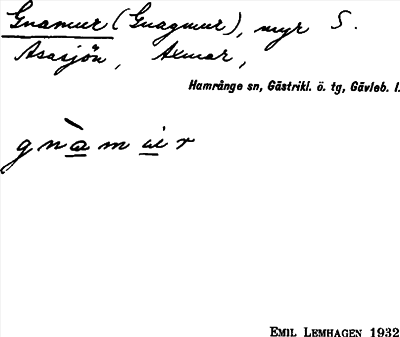 Gnamur (Gnagmur), myr S.
Asasjön, Axmar,
Hamrånge sn, Gästrikl. ö. tg, Gävleb. l.
EMIL LEMHAGEN 1932